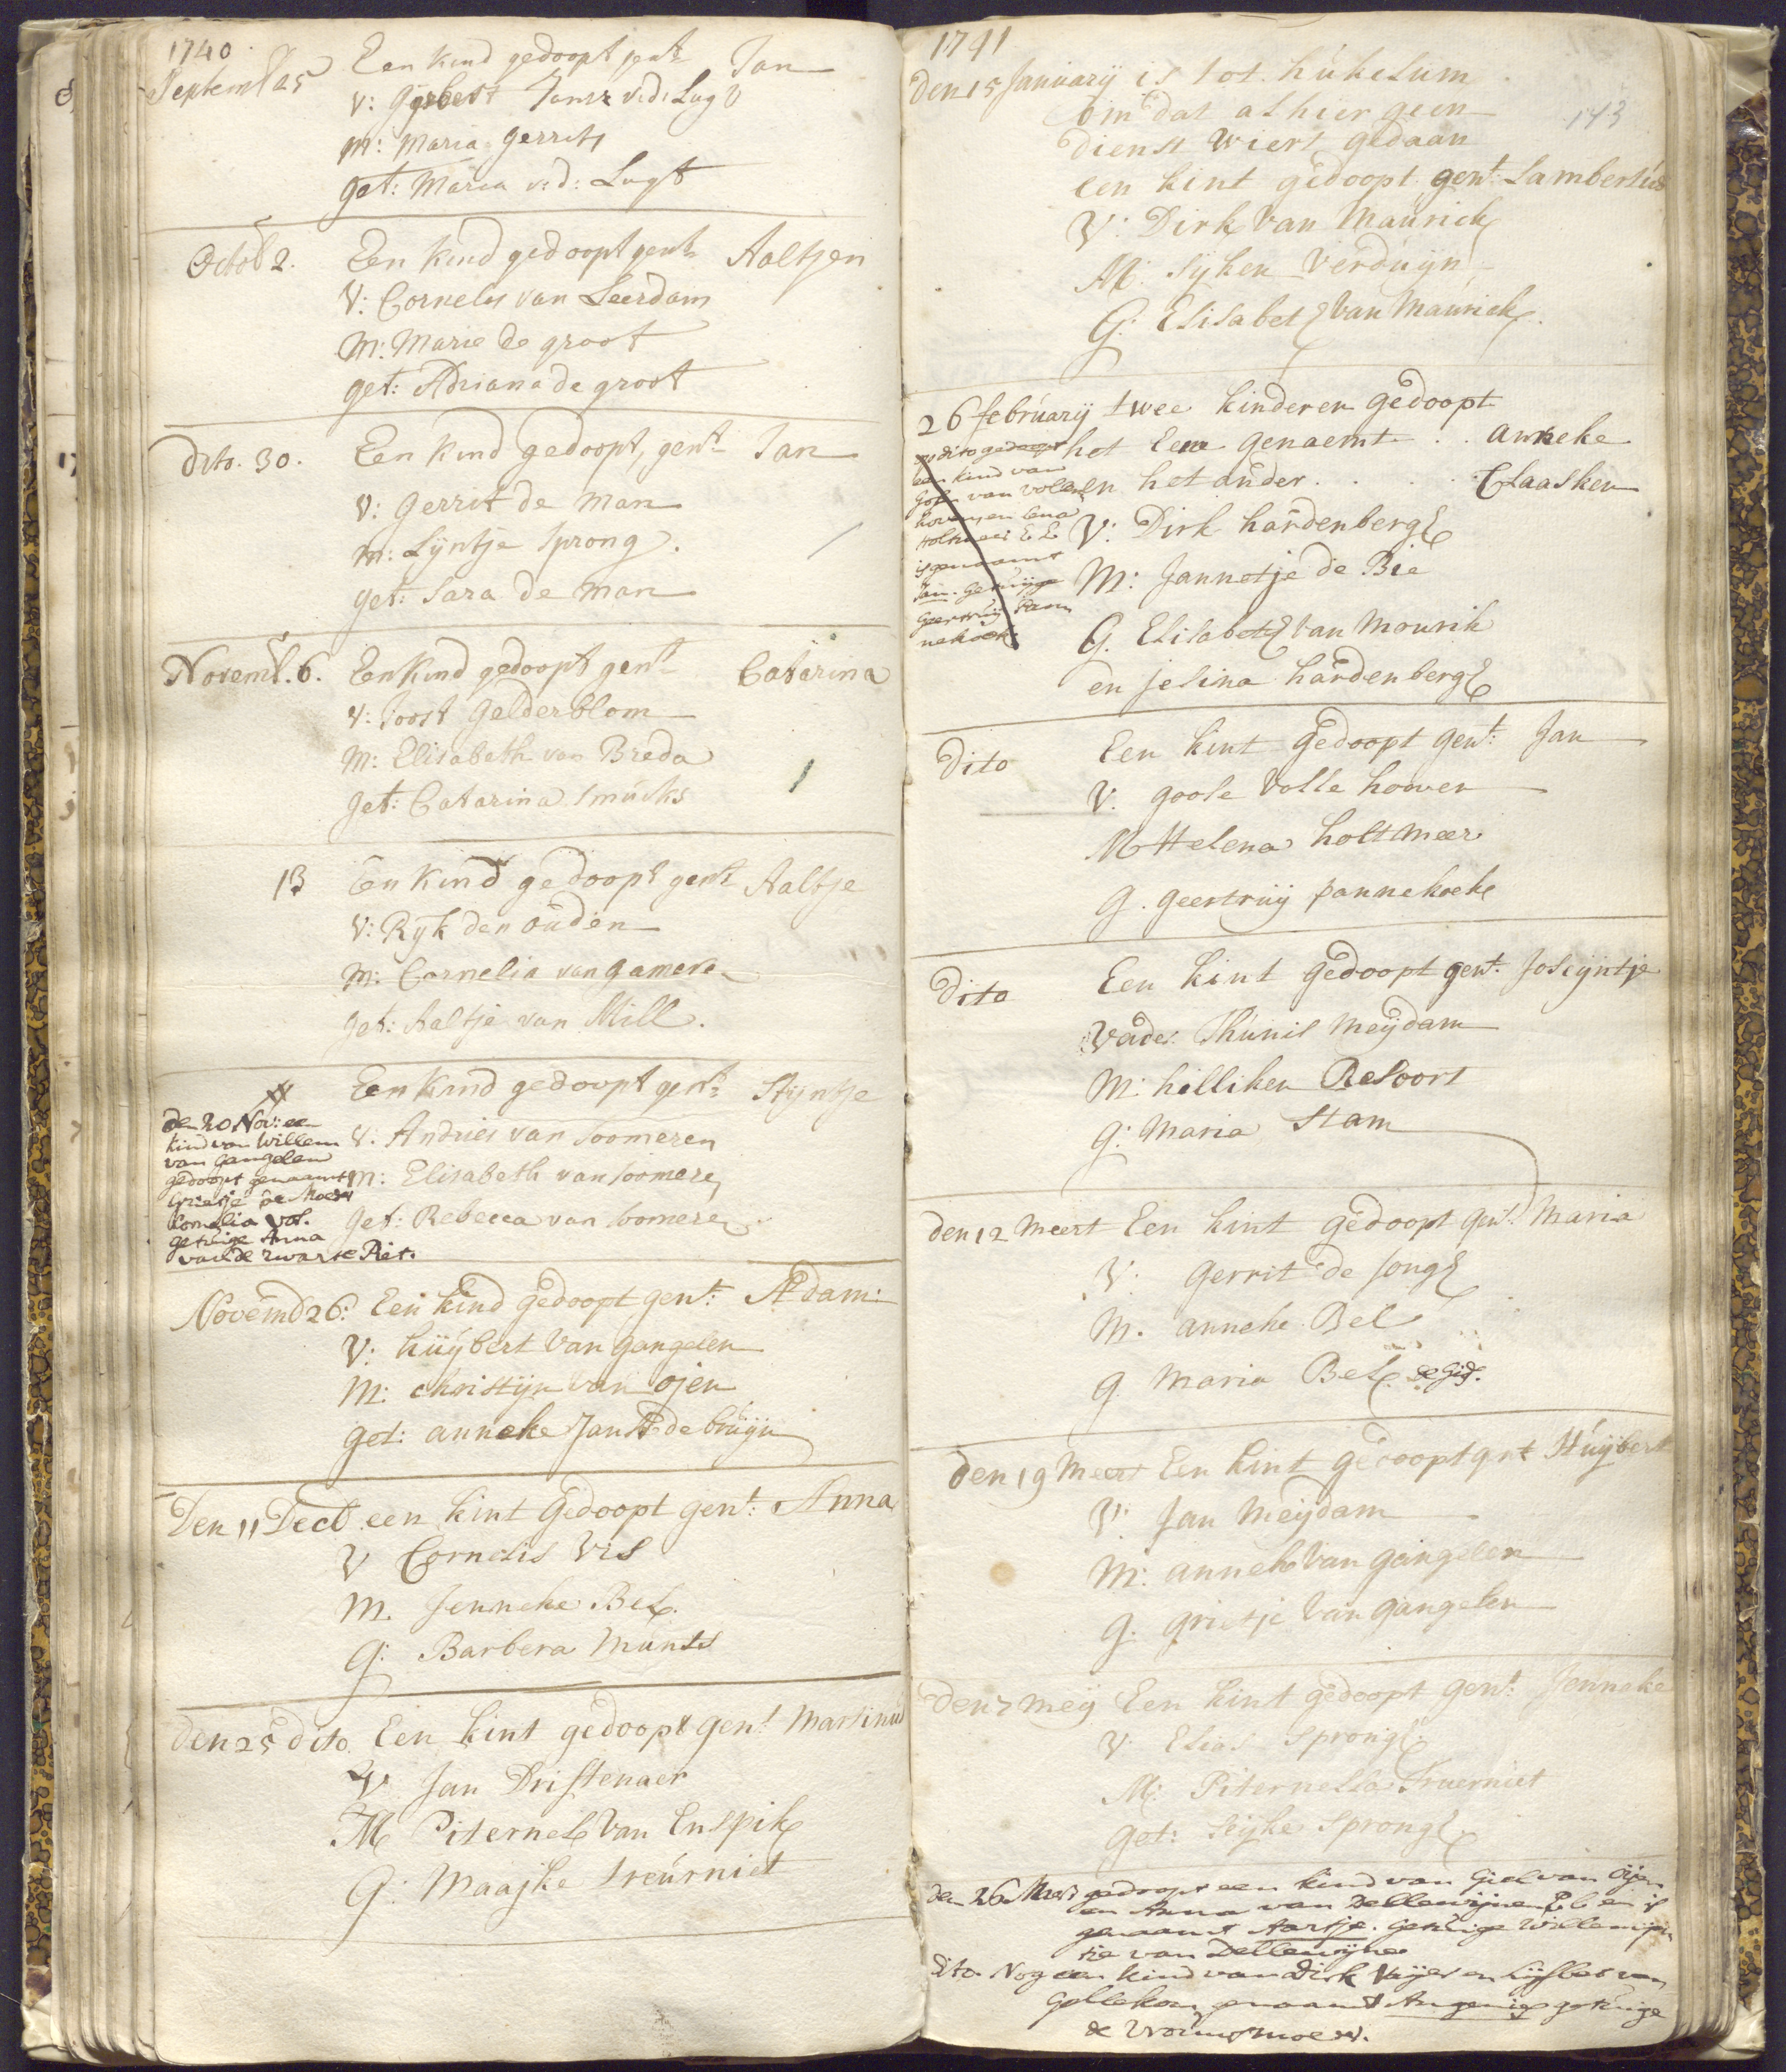 1740
Septemb 25 Een kind gedoopt gent: Jan
V: Gysbert Jansz v:d: Lugt
M: Maria Gerrits
get: Maria v:d: Lugt
Octob 2. Een kind gedoopt gent: Aaltjen
V: Cornelis van Leerdam
M: Marie de groot
get: Adriana de groot
Dito. 30. Een kind gedoopt, gent: Jan
V: Gerrit de Man
M: Lijntje Sprong.
get: Sara de man
Novemb. 6. Een Kind gedoopt gent: Catarina
V: Joost Gelderblom
M: Elisabeth van Breda
get: Catarina Smucks
13 Een Kind gedoopt gent: Aaltje
V: Ryk den ouden
M: Cornelia van gameren
get: Aaltje van Mill.
Een Kind gedoopt gent: Stijntje
V: Andries van Soomeren
M: Elisabeth van Soomeren
get: Rebecca van Soomeren
den 20 Nov: een
kind van Willem
van Gangelen
gedoopt genaamt
Grietje de Moer
Cornelia Vos.
getuige Anna
van de zwarte Piet.
Novemb 26: Een kind gedoopt gent: Adam:
V: huijbert Van gangelen
M: christijn van ojen
get: anneke Jans de bruijn
Den 11 Decb een kint gedoopt gent: Anna
V Cornelis Vis
M. Jenneke Bel.
G: Barbera Munts
Den 25 dito Een kint gedoopt gent Martinus
V Jan Dristenaer
M Piternel Van Enspik
G: Maajke treurniet
1741
143
Den 15 January is tot hukelum
om dat alhier geen
dienst wiert gedaan
een kint gedoopt gent: Lambertus
V: Dirk Van Maurick
M: Sijken Verduijn
G: Elisabet Van Maurick.
26 february twee kinderen gedoopt
het Een genaemt . . anneke
en het ander . . . . Claasken
V: Dirk hardenberg
M: Jannetje de Bie
G. Elisabet Van Mourik
en jelina hardenberg
op dito gedoopt
een kind van
Gose van Vollen
hoven en Lena
Holtmeer E. L.
is genaamt
Jan. Getuijge
Geertruij Pan
nekoek.
Dito Een kint gedoopt gent: Jan
V. goose Volle hooven
M Helena holtmeer
G. geertruij pannekoek
Dito Een kint gedoopt gent. Josijntje
Vader Thunis Meijdam
M: hilliken Resoort
G: Maria Stam
den 12 Meert Een kint gedoopt gent: Maria
V: gerrit de Jong
M. anneke Bel
G Maria Bel.
den 19 Meert Een kint gedoopt gnt Huijbert
V: Jan Meijdam
M: anneke Van gangelen
G. grietje Van gangelen
Den 7 Meij Een kint gedoopt gent: Jenneke
V Elias Sprong.
M: Piternella Truerniet
Get: Seijke Sprong.
den 26 Meert gedoopt een kind van Giel van Oijen
en Anna van Dellewijnen E. L. en is
genaamt Aartje. Getuige Willemijn
tie van Dellewijnen
Dito. Nog een kind van Dirk en Lijsbet van
genaamt getuige
de Vroumoer.